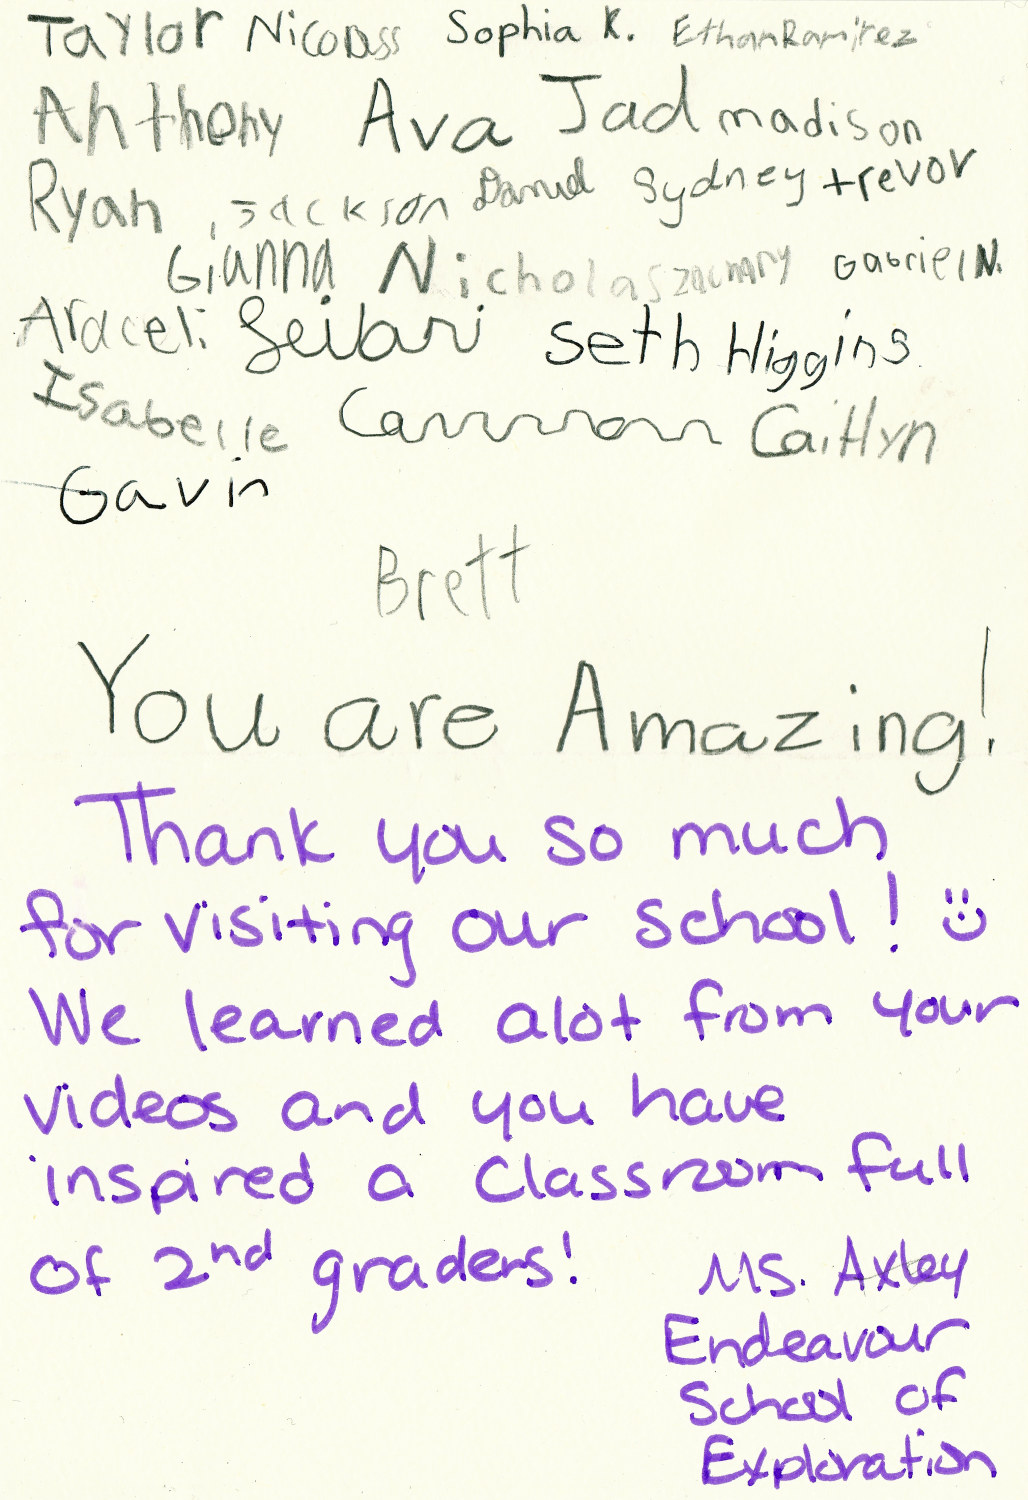 Taylor Nicoass Sophia K. Ethan Ramirez
Anthony Ava Jad madison
Ryan Jackson Daniel Sydney trevor
Gianna Nicholas zachary Gabriel N.
Araceli Seth Higgins
Isabelle Cammron Caitlyn
Gavin
Brett
You are Amazing!
Thank you so much
for visiting our school! ☺
We learned alot from your
videos and you have
inspired a classroom full
of 2nd graders!
Ms. Axley
Endeavour
School of
Exploration